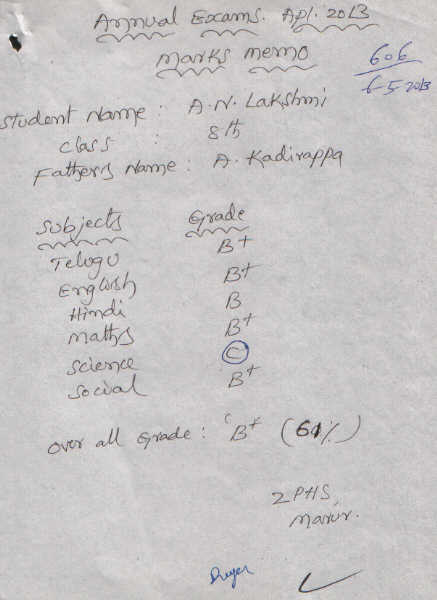 Annual Exams. Apl. 2013
Marks memo
606
6-5-2013
Student Name : A.N. Lakshmi
Class : 8th
Father's Name : A. Kadirappa
Subjects Grade
Telugu B+
English B+
Hindi B
Maths B+
Science C
Social B+
Over all Grade : B+ (61%)
ZPHS,
Marur.